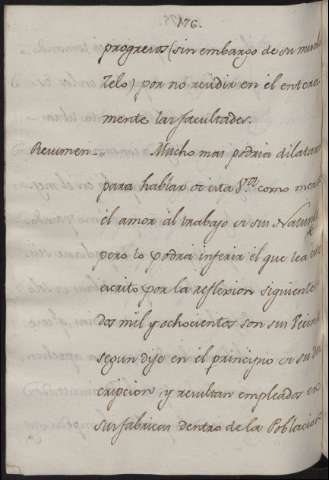 176.
progresos (sin embargo de su mucho
zelo) por no recidir en él entera-
mente las facultades.
Resumen. Mucho mas podria dilatar
para hablar de esta V.ª como merece
el amor al trabajo de sus Natur
pero lo podrá inferir el que lea este
escrito por la reflexion siguiente
dos mil y ochocientos son sus Vecin
segun dije en el principio de su
cripcion, y resultan empleados en
sus fabricas dentro de la Poblacion